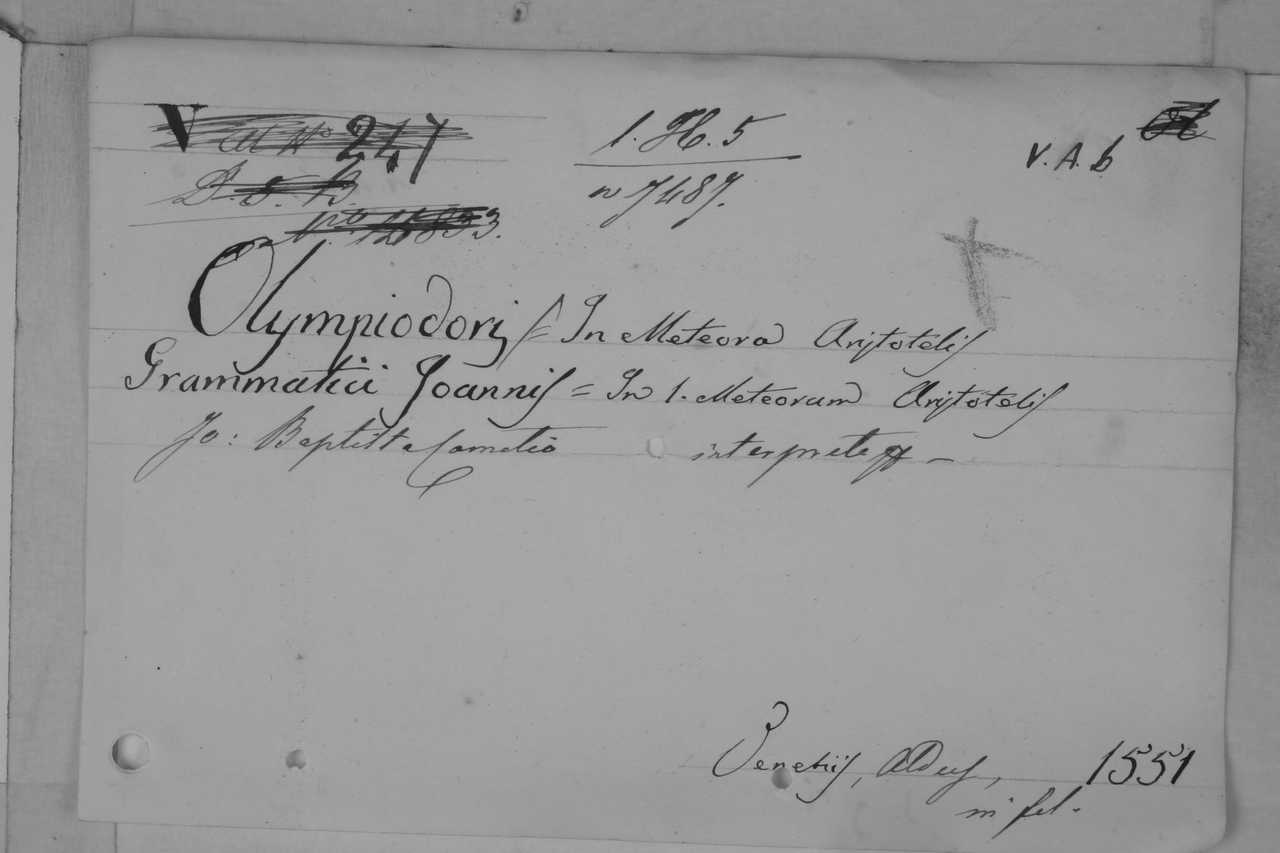 V 247
1. H. 5
V. A. b
n 7487.
Olympiodorj = In Meteora Aristotelis
Grammatici Joannis = In 1. Meteorum Aristotelis
Jo: Baptista Camotio interprete —
Venetiis, Aldus, 1551
in fol.